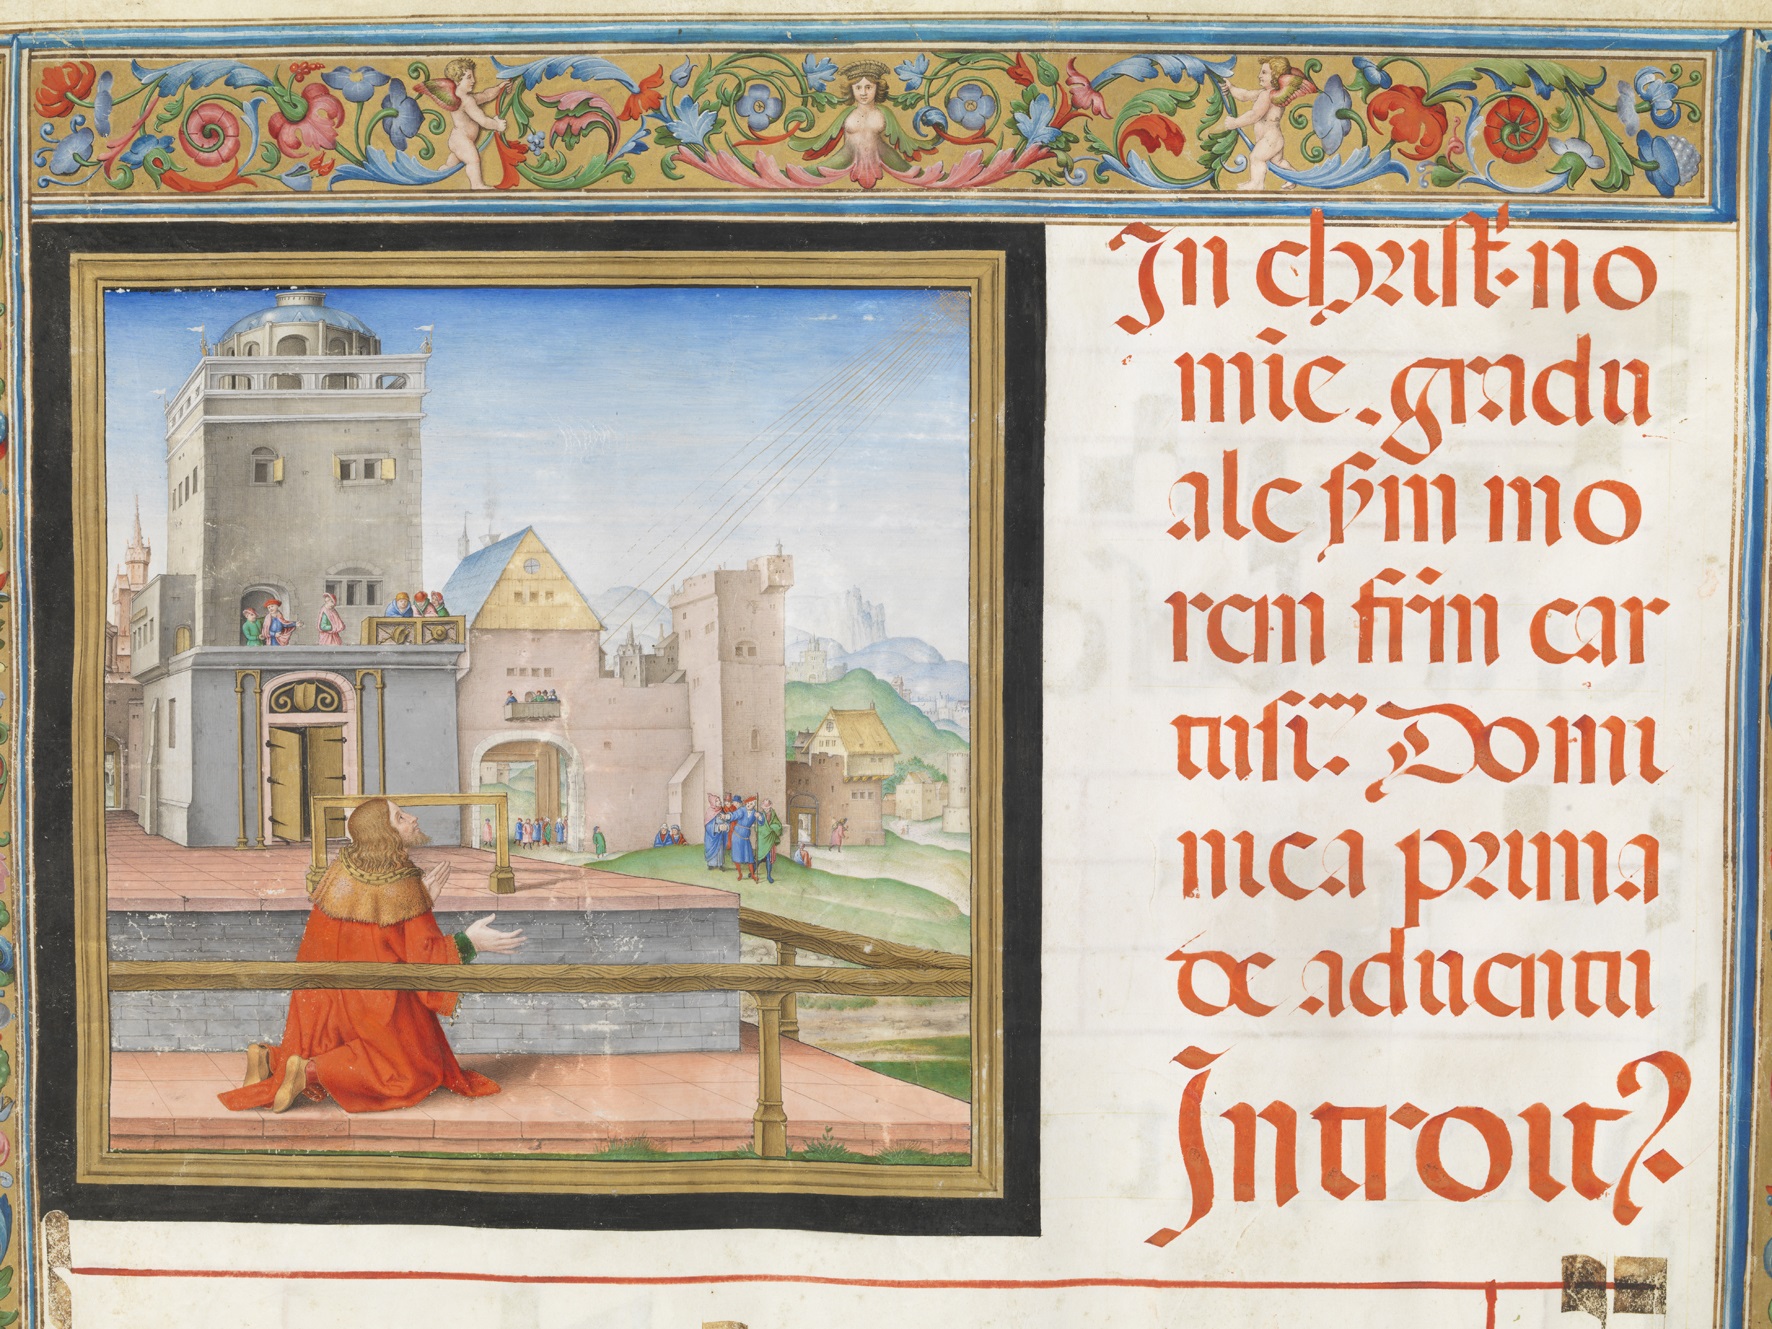 In christ. no
mie. gradu
ale ſm mo
rem frm car
tusiᵐ. Domi
nica prima
de aduentu
Introit?